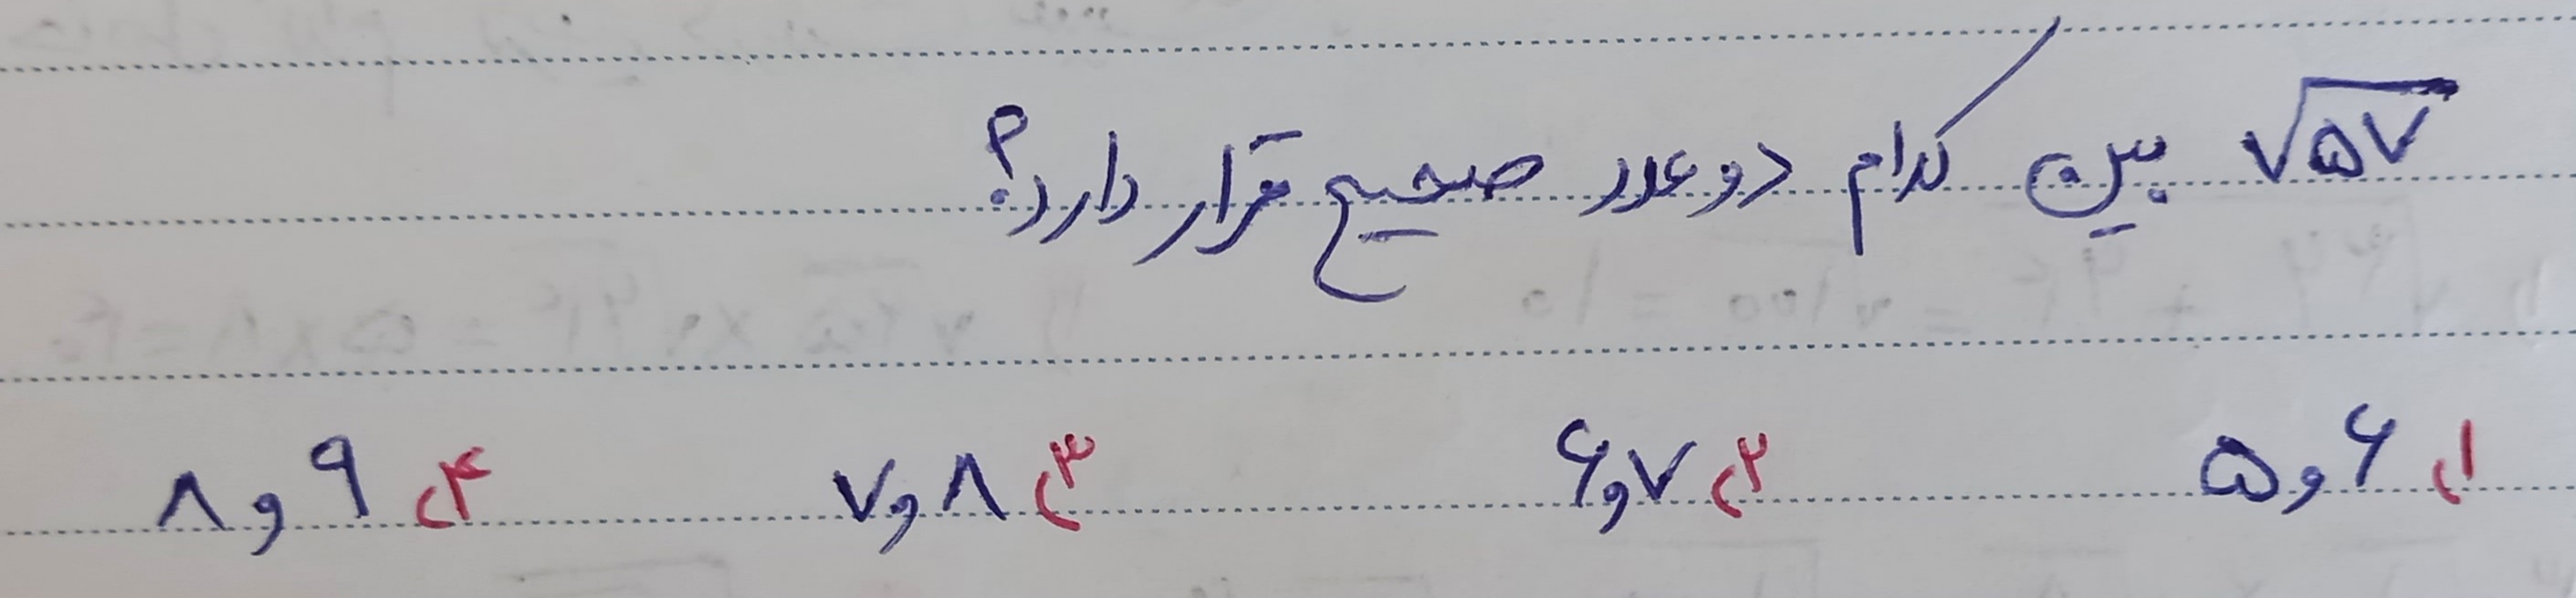 √۵۷ بین کدام دو عدد صحیح قرار دارد؟
۱) ۶ و ۵ ۲) ۷ و ۶ ۳) ۸ و ۷ ۴) ۹ و ۸